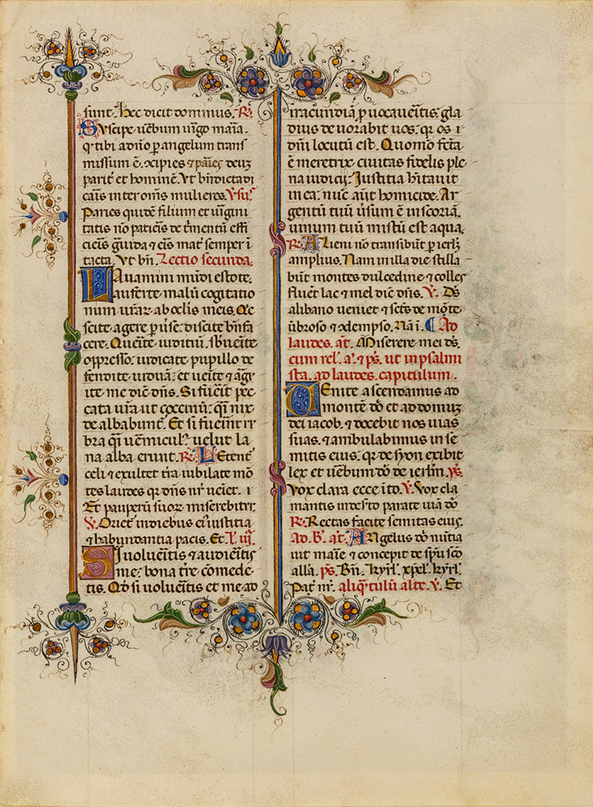 sunt. Hec dicit dominus. R.
Suscipe uerbum uirgo maria.
q̄ tibi a dn̄o p̱ angelum trans
missum ē. ↄcipies ⁊ paries deuz
parit̄ et hominē. Vt bn̄dicta di
caris inter om̄s mulieres. V̓su.
Paries quidē filium et uirgini
tatis nō patieris detrimētū effi
cieris grauida ⁊ eris mat̄ semper ī
tacta. Vt bn̄. Lectio secunda.
Lauamini mūdi estote.
auferte malū cogitatio
num urar̄ ab oclis meis. Qi
escite agere p̱uerse. discite bn̄fa
cere. Querite iuditiū. subuenite
oppresso. iudicate pupillo de
fendite uiduā. et uenite ⁊ argui
te me dicit dn̄s. Si fuerīt pec
cata ur̄a ut coccinū. q̄i nix
dealbabunt̄. Et si fuerint ru
bra q̄i uermicul̓. uelut la
na alba erunt. R. Letent̄
celi ⁊ exultet t̄ra iubilate mō
tes laudes qr̓ dn̄s nr̄ ueniet. ⁊
Et pauperū suoꝝ miserebitur.
V. Oriet̄ in diebus ei̓ iustitia
⁊ habundantia pacis. Et. L. iij.
Si uolueritis ⁊ audieritis
me. bona tr̄e comede
tis. Qd̓ si nolueritis et me ad
iracundiā p̱uocaueritis. gla
dius deuorabit uos. qr̓ os
dn̄i locutū est. Quomō fc̄ta
ē meretrix ciuitas fidelis ple
na iudicij. Iustitia hītauit
in ea. nūc aūt homicide. Ar
gentū tuū uersum ē in scoriā.
uinum tuū mistū est aqua.
R. Alieni nō transibūt p̱ ierlz̄
amplius. Nam in illa die stilla
būt montes dulcedinē ⁊ colles
fluēt lac ⁊ mel dic̄ dn̄s. V. Ds̄
a libano ueniet ⁊ sct̄s de mōte
ūbroso ⁊ ↄdempso. Nā ī. Ad
laudes. an̄. Miserere mei ds̄.
cum rel̓. a. ⁊ ps̄. ut in psalmi
sta. ad laudes. capitulum.
Uenite ascendamus ad
montē dn̄i et ad domuz
dei iacob. ⁊ docebit nos uias
suas. ⁊ ambulabimus in se
mitis eius. qr̓ de syon exibit
lex et uerbum dn̄i de ierl̄m. V̓s.
Vox clara ecce ītōat. V. Vox cla
mantis in desērto parate uiā dn̄i
R. Rectas facite semitas eius.
Ad. B. an̄. Angelus dn̄i nūtia
uit marie ⁊ concepit de sp̄u scō
alla. ps̄. Bn̄. kyrl̓. xpel̓. kyrl̓.
Pat̄ nr̄. aliq̄tulū alte. V. Et